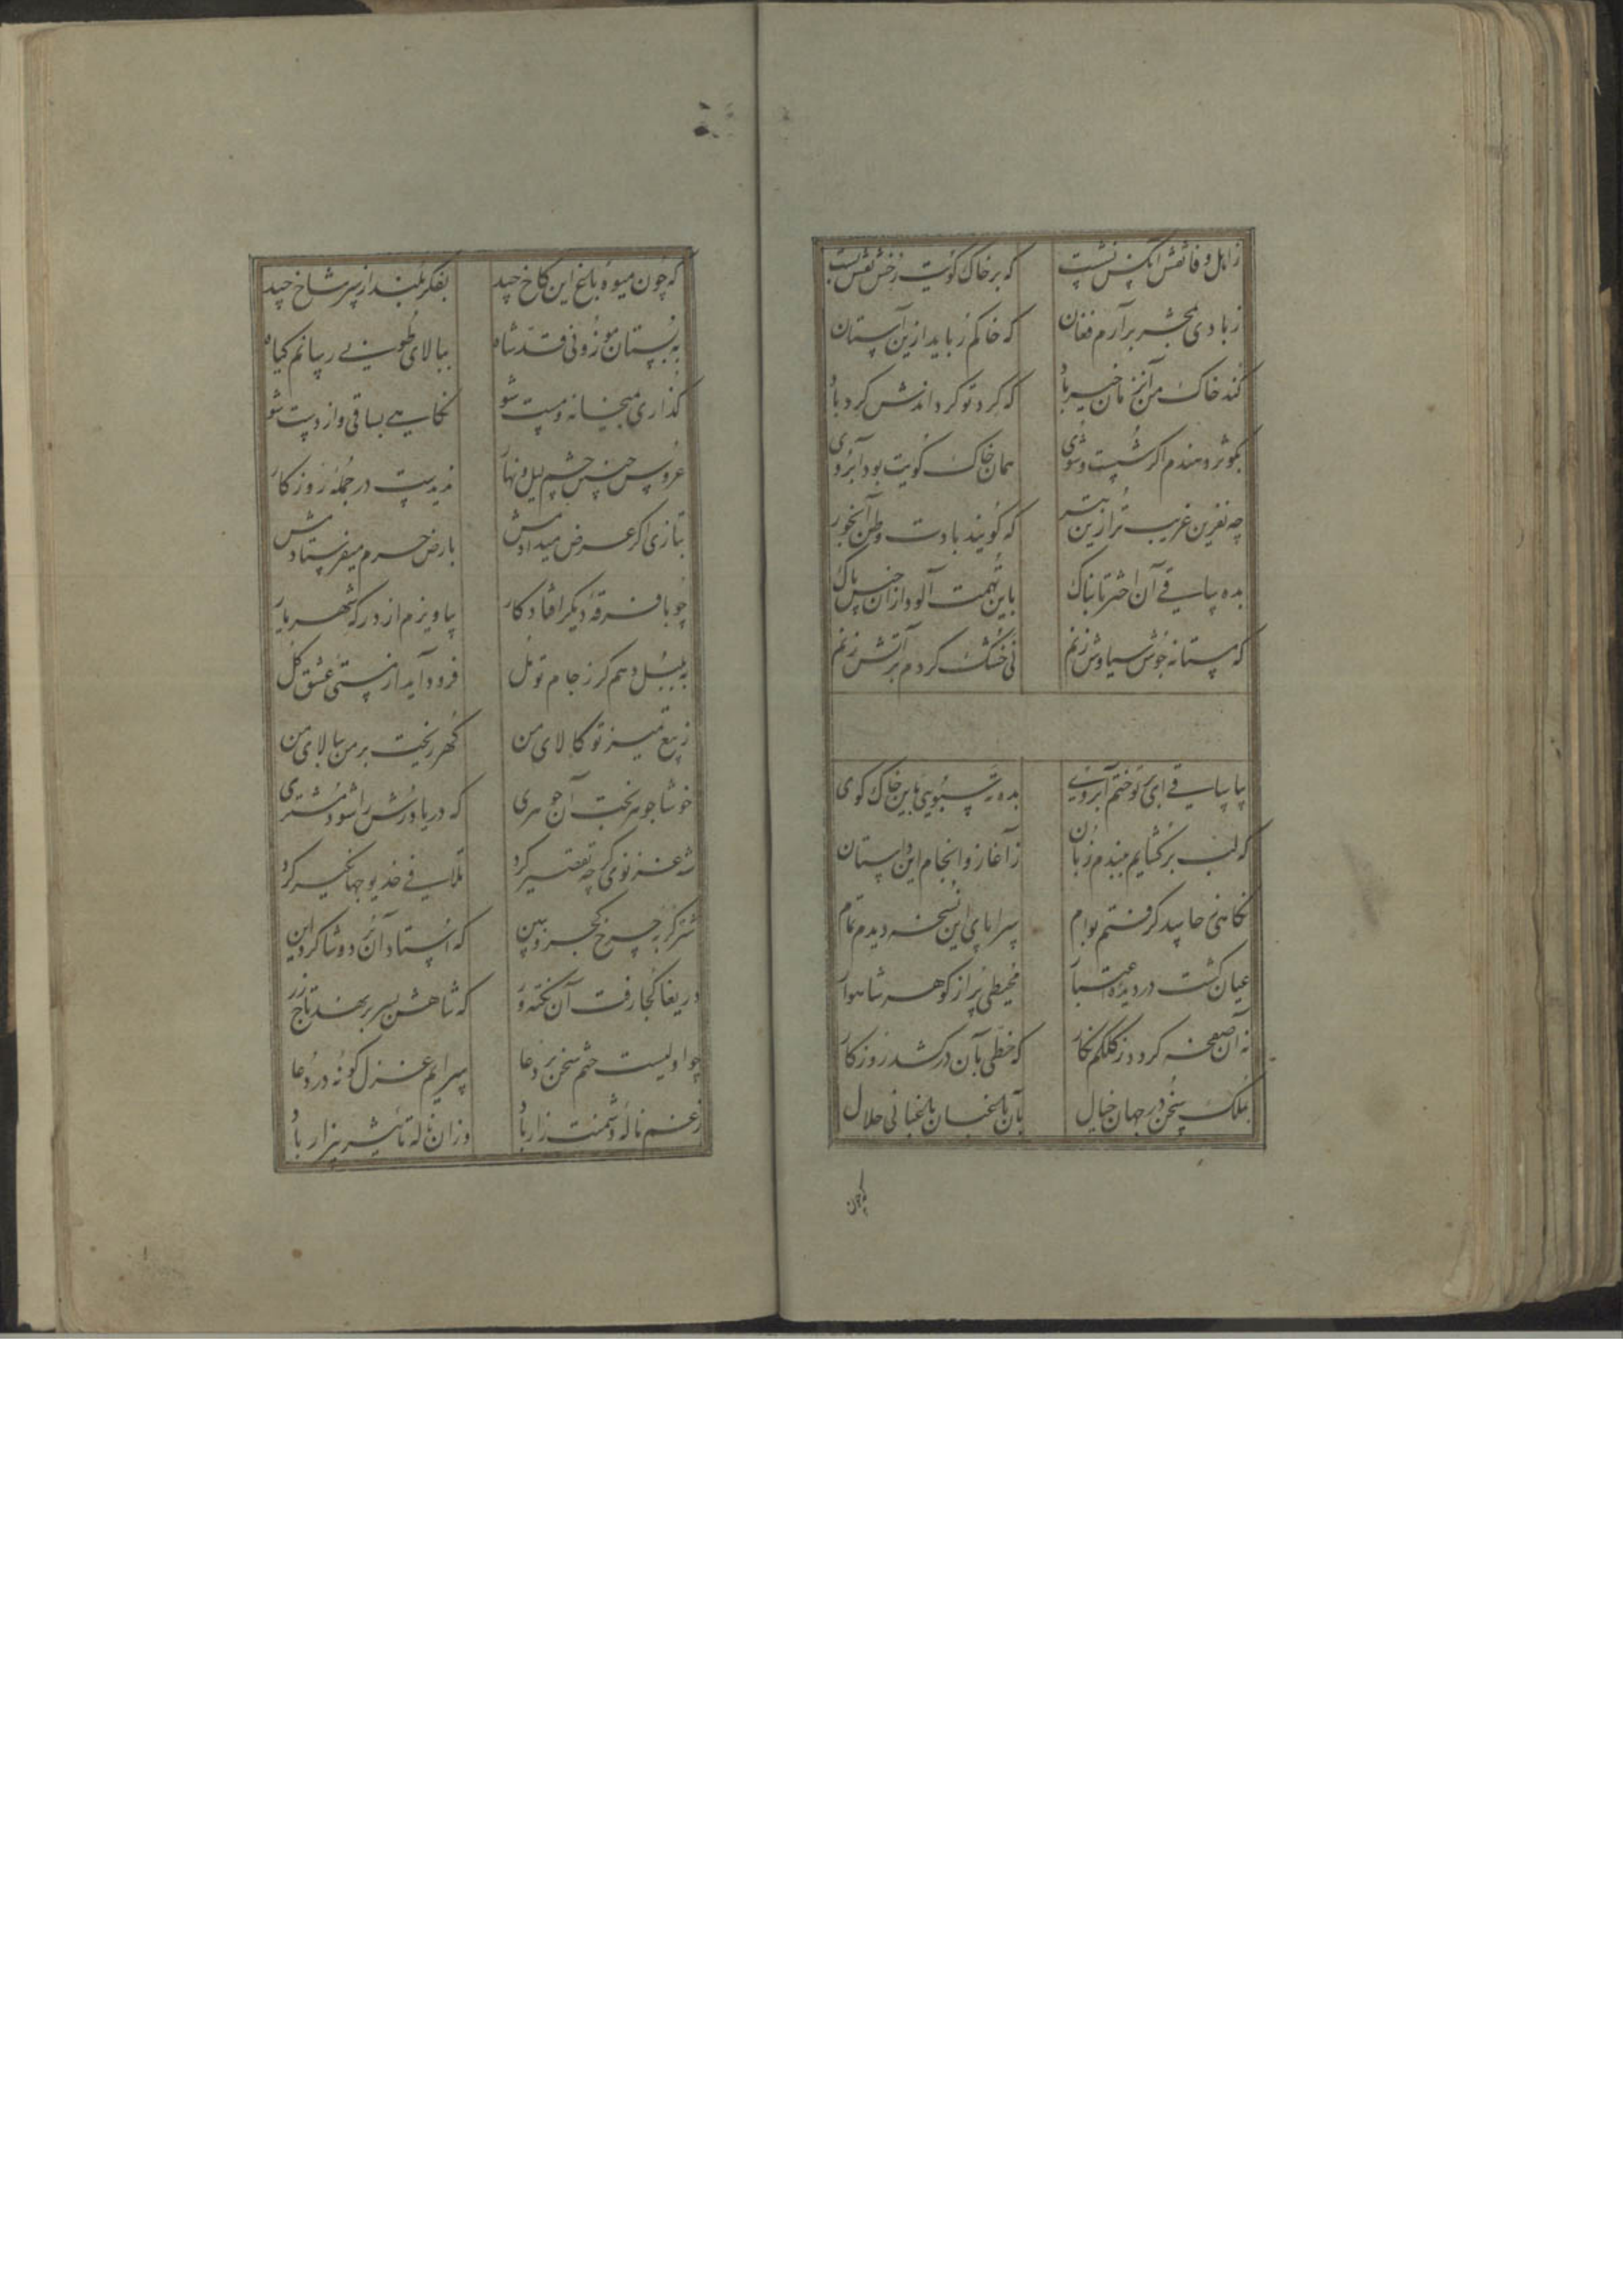 ز اهل وفا نقش آنکس نشست که بر خاک کویت رخش نقش بست
ز بادی بمحشر برآرم فغان که خاکم رباید ازین آستان
کند خاک من آنزمان خیرباد که کرد تو کرداندش کردباد
بکوثر دهندم اکر شست و شوی همان خاک کویت بود آبروی
چه نفرین غریب ترا زین بتر که کویند بادت وطن آبخور
بده ساقی آن اختر تابناک باین تهمت آلود از آن جنس پاک
که مستانه جوش سیاوش زنم نی خشک کردم بر آتش زنم
بیا ساقی ای تو ختم آبروی بده ته سبویی باین خاک کوی
که لب برکشایم ببندم زبان ز آغاز و انجام این داستان
نکاهی جاید کرفتم بوام سراپای این نسخه دیدم تمام
عیان کشت در دیده اعتبار محیطی پر از کوهر شاهوار
نه آن صفحه کردد ز کلکم نکار که خطی بآن درکشد روزکار
بملک سخن در جهان خیال بآن باغبان باغبانی حلال
که چون
که چون میوه باغ این کاخ چید بفکر بلند از سر شاخ چید
به بستان موزونی قد شاه ببالای طوبی رسانم کیاه
کذاری میخانه و مست شو نکاهی بساقی و از دست شو
عروس چنین چشم لیل و نهار ندیدست در جمله روزکار
بتازی اکر عرض میدادمش بارض حرم میفرستادمش
چو با فرقه دیکر افتاد کار بیاویزم از درکه شهریار
به بلبل دهم کر ز جام تو مل فرود آید از مستی عشق کل
ز تیغ تمیز تو کالای من کهر ریخت بر من ببالای من
خوشا جوهر بخت آن جوهری که دریا درش را شود مشتری
شه غزنوی کرچه تقصیر کرد تلافی خدیو جهانکیر کرد
که استاد آن بود و شاکرد این
دریغا کجا رفت آن نکته ور که شاهش بسر برنهد تاج زر
چو او لیست ختم سخن بر دعا سرایم غزل کونه در دعا
ز غم ناله دشمنت زار باد وزان ناله تاثیر بیزار باد